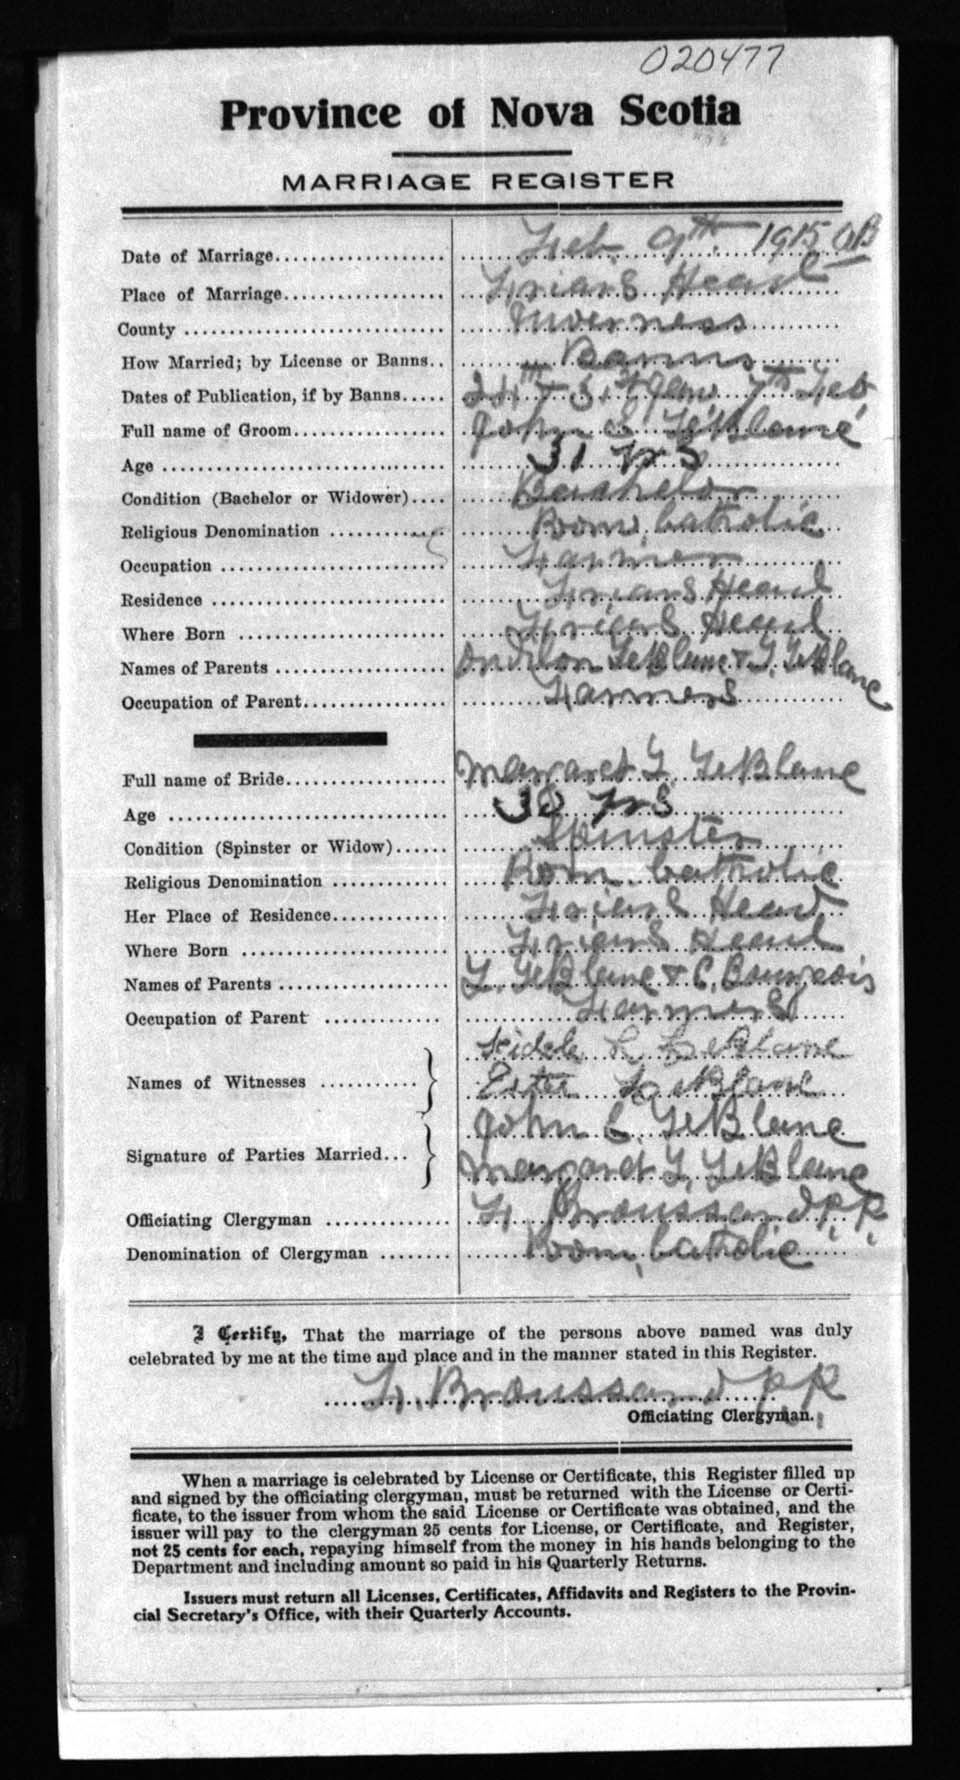 020477
Province of Nova Scotia
MARRIAGE REGISTER
Date of Marriage Feb 9th 1915 OB
Place of Marriage Friar's Head
County Inverness
How Married; by License or Banns Banns
Dates of Publication, if by Banns 24th & 31st Jan 7th Feb
Full name of Groom John C LeBlanc
Age 31 yrs
Condition (Bachelor or Widower) Bachelor
Religious Denomination Rom. Catholic
Occupation Farmer
Residence Friars Head
Where Born Friars Head
Names of Parents LeBlanc & L. LeBlanc
Occupation of Parent Farmers
Full name of Bride Margaret L. LeBlanc
Age 30 yrs
Condition (Spinster or Widow) Spinster
Religious Denomination Rom. Catholic
Her Place of Residence Friars Head
Where Born Friars Head
Names of Parents L. LeBlanc & C. Bourgeois
Occupation of Parent Farmers
Names of Witnesses Fidele L LeBlanc
LeBlanc
Signature of Parties Married John C. LeBlanc
Margaret L. LeBlanc
Officiating Clergyman Broussard P.P.
Denomination of Clergyman Rom. Catholic
I Certify, That the marriage of the persons above named was duly
celebrated by me at the time and place and in the manner stated in this Register.
Broussard P.P.
Officiating Clergyman.
When a marriage is celebrated by License or Certificate, this Register filled up
and signed by the officiating clergyman, must be returned with the License or Certi-
ficate, to the issuer from whom the said License or Certificate was obtained, and the
issuer will pay to the clergyman 25 cents for License, or Certificate, and Register,
not 25 cents for each, repaying himself from the money in his hands belonging to the
Department and including amount so paid in his Quarterly Returns.
Issuers must return all Licenses, Certificates, Affidavits and Registers to the Provin-
cial Secretary's Office, with their Quarterly Accounts.